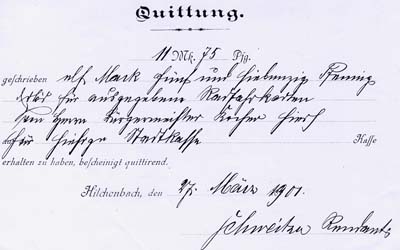 Quittung.
11 Mk. 75 Pfg.
geschrieben elf Mark fünf und siebenzig Pfennig
für ausgegebene Radfahrkarten
Herrn Bürgermeister hier
hiesige Stadtkasse Kasse
erhalten zu haben, bescheinigt quittirend.
Hilchenbach, den 27. März 1901.
Schweitzer Rendant